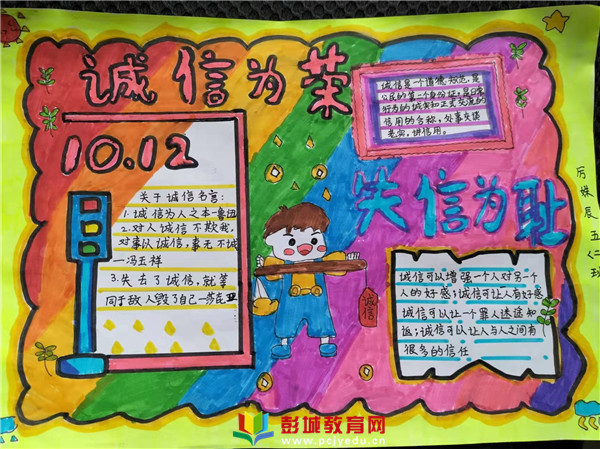 诚信为荣
10.12
关于诚信名言:
1.诚信为人之本—鲁迅
2.对人诚信不欺我,
对事以诚信,事无不诚
—冯玉祥
3.失去了诚信,就等
同于敌人毁了自己—莎克亚
诚信是个道德规范,是
公民的第二个身份证,是日常
行为的诚实和正式交流的
信用的合称,处事
老实,讲信用。
笑信为耻
诚信
诚信可以增强一个人对另一个
人的好感;诚信可让人有好感
诚信可以让一个罪人迷途知
返;诚信可以让人与人之间有
很多的信任
辰五
二班
彭城教育网
www.pcjyedu.cn